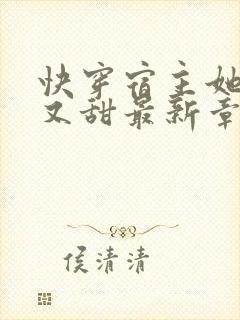 快穿宿主她
又甜最新章
侯清清